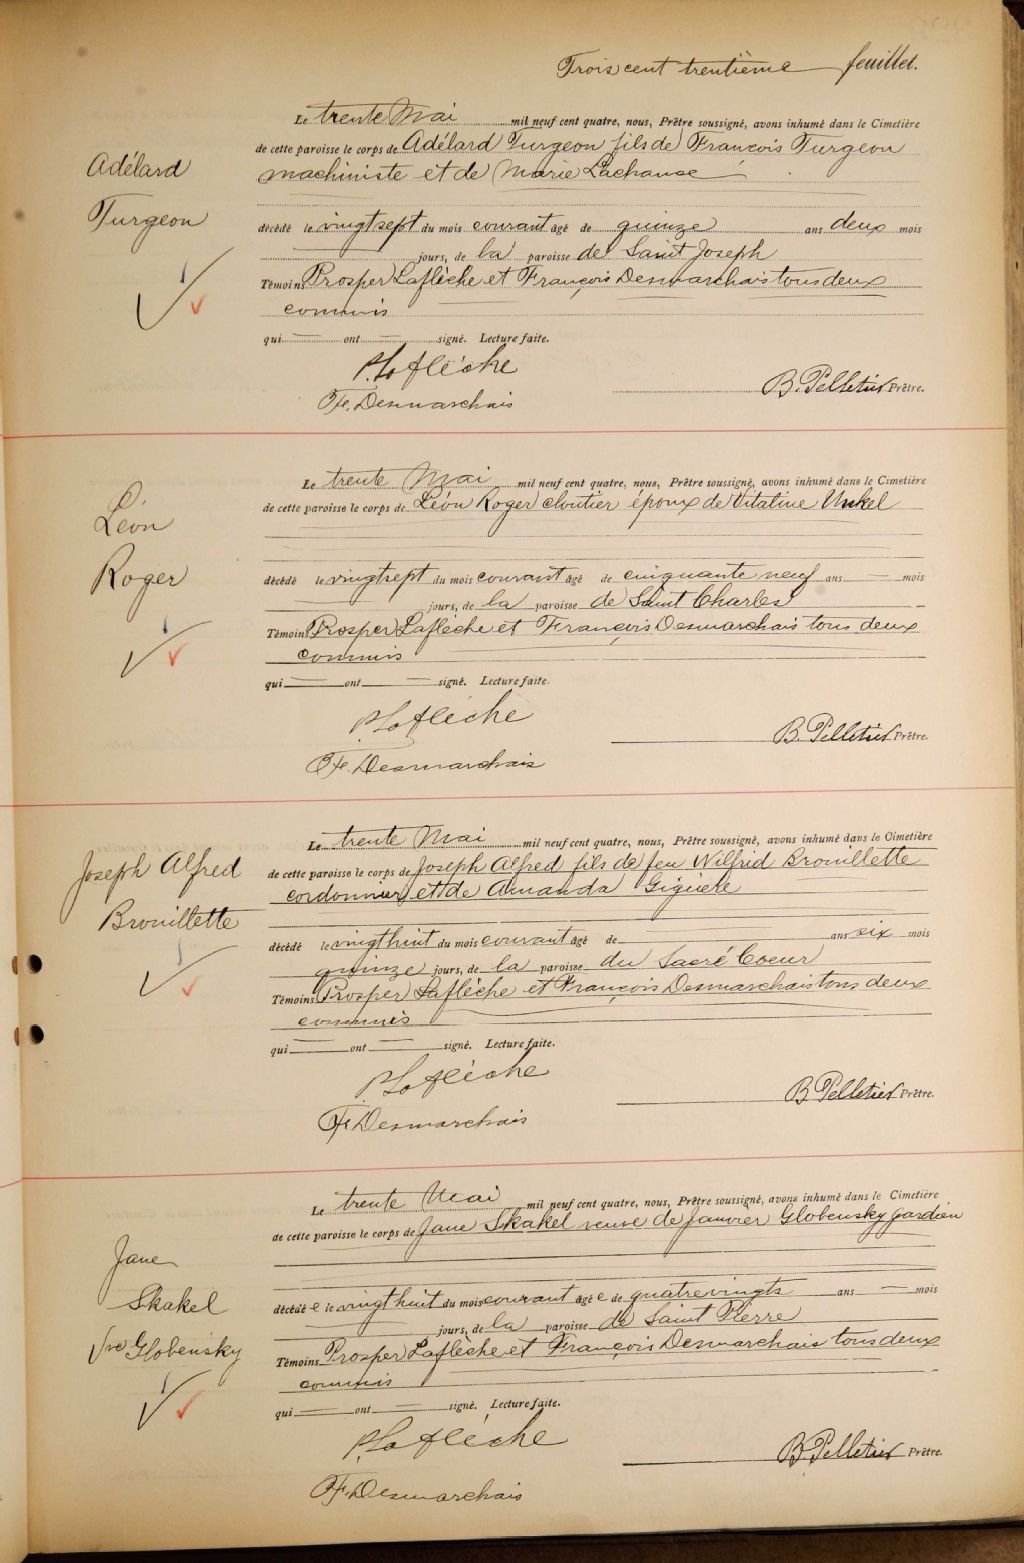 Trois cent trentième feuillet.
Adélard
Turgeon
Le trente Mai mil neuf cent quatre, nous, Prêtre soussigné, avons inhumé dans le Cimetière
de cette paroisse le corps de Adélard Turgeon fils de François Turgeon
machiniste et de Marie Lachance
décédé le vingt sept du mois courant âgé de quinze ans deux mois
jours, de la paroisse de Saint Joseph
Témoins Prosper Laflèche et François Desmarchais tous deux
commis
qui ont signé. Lecture faite.
P. Laflèche
B. Pelletier Prêtre.
F. Desmarchais
L.
Léon
Roger
Le trente Mai mil neuf cent quatre, nous, Prêtre soussigné, avons inhumé dans le Cimetière
de cette paroisse le corps de Léon Roger cloutier époux de Vitaline
décédé le vingt sept du mois courant âgé de cinquante neuf ans mois
jours, de la paroisse de Saint Charles
Témoins Prosper Laflèche et François Desmarchais tous deux
commis
qui ont signé. Lecture faite.
P. Laflèche
B. Pelletier Prêtre.
F. Desmarchais
Joseph Alfred
Brouillette
Le trente Mai mil neuf cent quatre, nous, Prêtre soussigné, avons inhumé dans le Cimetière
de cette paroisse le corps de Joseph Alfred fils de feu Wilfrid Brouillette
cordonnier et de Amanda Giguère
décédé le vingt huit du mois courant âgé de ans six mois
quinze jours, de la paroisse du Sacré Coeur
Témoins Prosper Laflèche et François Desmarchais tous deux
commis
qui ont signé. Lecture faite.
P. Laflèche
B. Pelletier Prêtre.
F. Desmarchais
Jane
Skakel
Vve Globensky
Le trente Mai mil neuf cent quatre, nous, Prêtre soussigné, avons inhumé dans le Cimetière
de cette paroisse le corps de Jane Skakel veuve de Janvier Globensky gardien
décédée le vingt huit du mois courant âgée de quatre vingts ans mois
jours, de la paroisse de Saint Pierre
Témoins Prosper Laflèche et François Desmarchais tous deux
commis
qui ont signé. Lecture faite.
P. Laflèche
B. Pelletier Prêtre.
F. Desmarchais